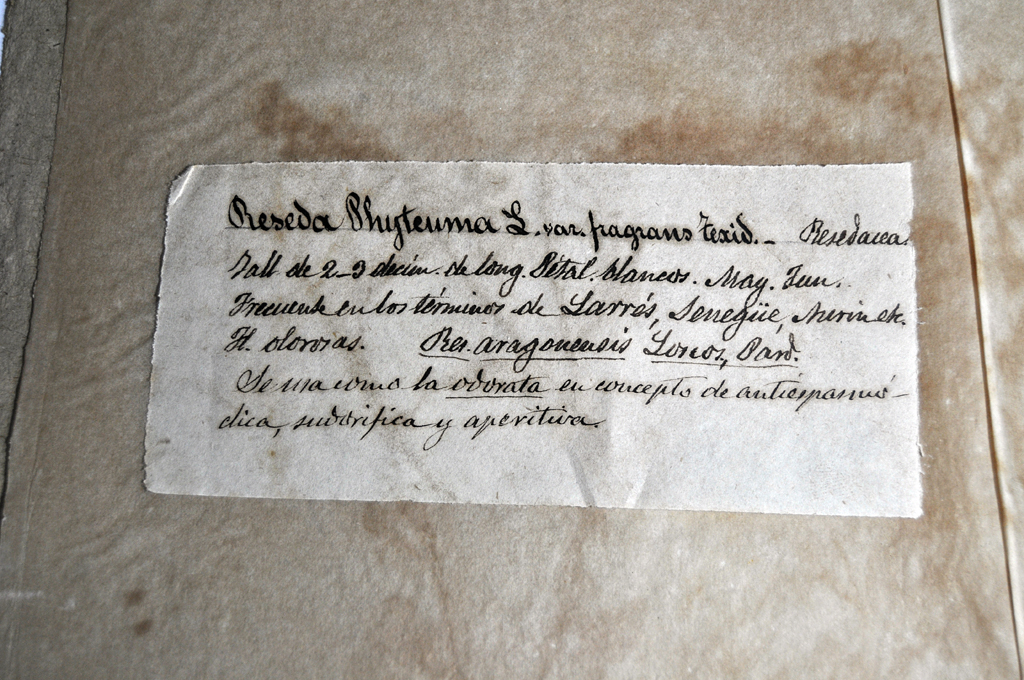 Reseda Phyteuma L. var. fragrans Texid. - Resedacea.
Tall de 2-3 decím. de long. Petal. blancos. May. Jun.
Frecuente en los términos de Larrés, Senegüe, Aurin etc.
Fl. olorosas. Res. aragonensis Loscos, Pard.
Se usa como la odorata en concepto de antiespasmó-
dica, sudorífica y aperitiva.